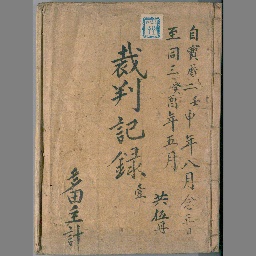 自寶暦二壬申年八月念五日
至同三癸酉年五月
共伍冊
裁判記録
壹
多田主計